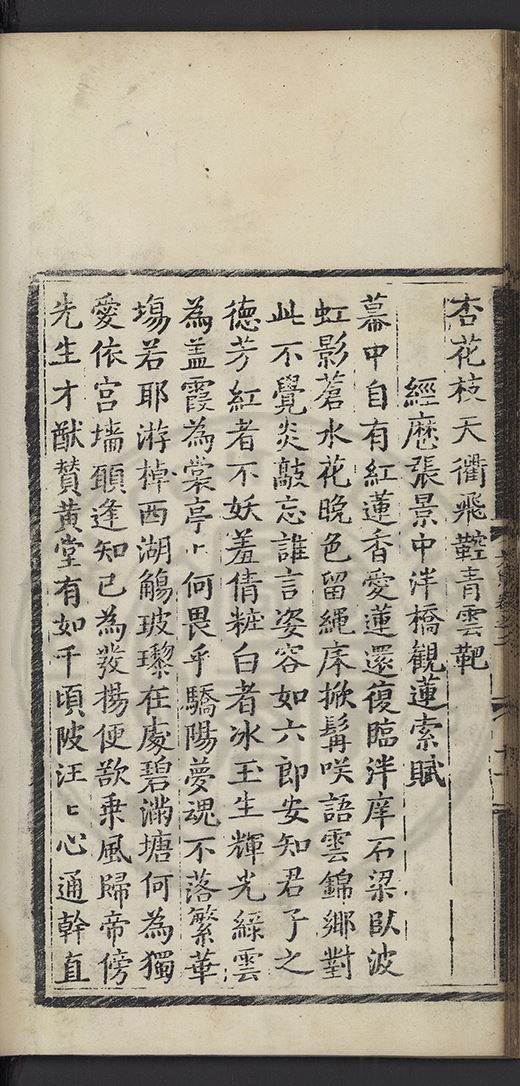 杏花枝天衢飛鞚青雲靶
經歷張景中泮橋觀蓮索賦
幕中自有紅蓮香愛蓮還復臨泮庠石梁臥波
虹影蒼水花晚色留繩床掀髯咲語雲錦鄉對
此不覺炎敲忘誰言姿容如六郎安知君子之
德芳紅者不妖羞倩粧白者冰玉生輝光綠雲
為盖霞為裳亭〻何畏乎驕陽夢魂不落繁華
塲若耶游棹西湖觴玻瓈在處碧滿塘何為獨
愛依宮墻願逢知己為發楊便欲乗風歸帝傍
先生才猷賛黃堂有如千頃陂汪〻心通幹直